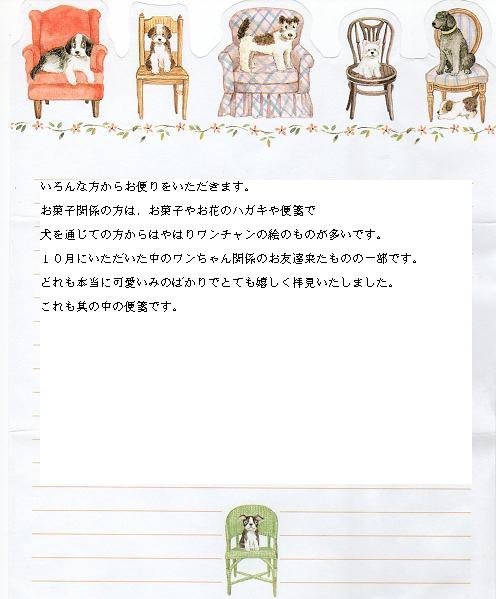 いろんな方からお便りをいただきます。
お菓子関係の方は、お菓子やお花のハガキや便箋で
犬を通じての方からはやはりワンチャンの絵のものが多いです。
１０月にいただいた中のワンちゃん関係のお友達来たものの一部です。
どれも本当に可愛いみのばかりでとても嬉しく拝見いたしました。
これも其の中の便箋です。